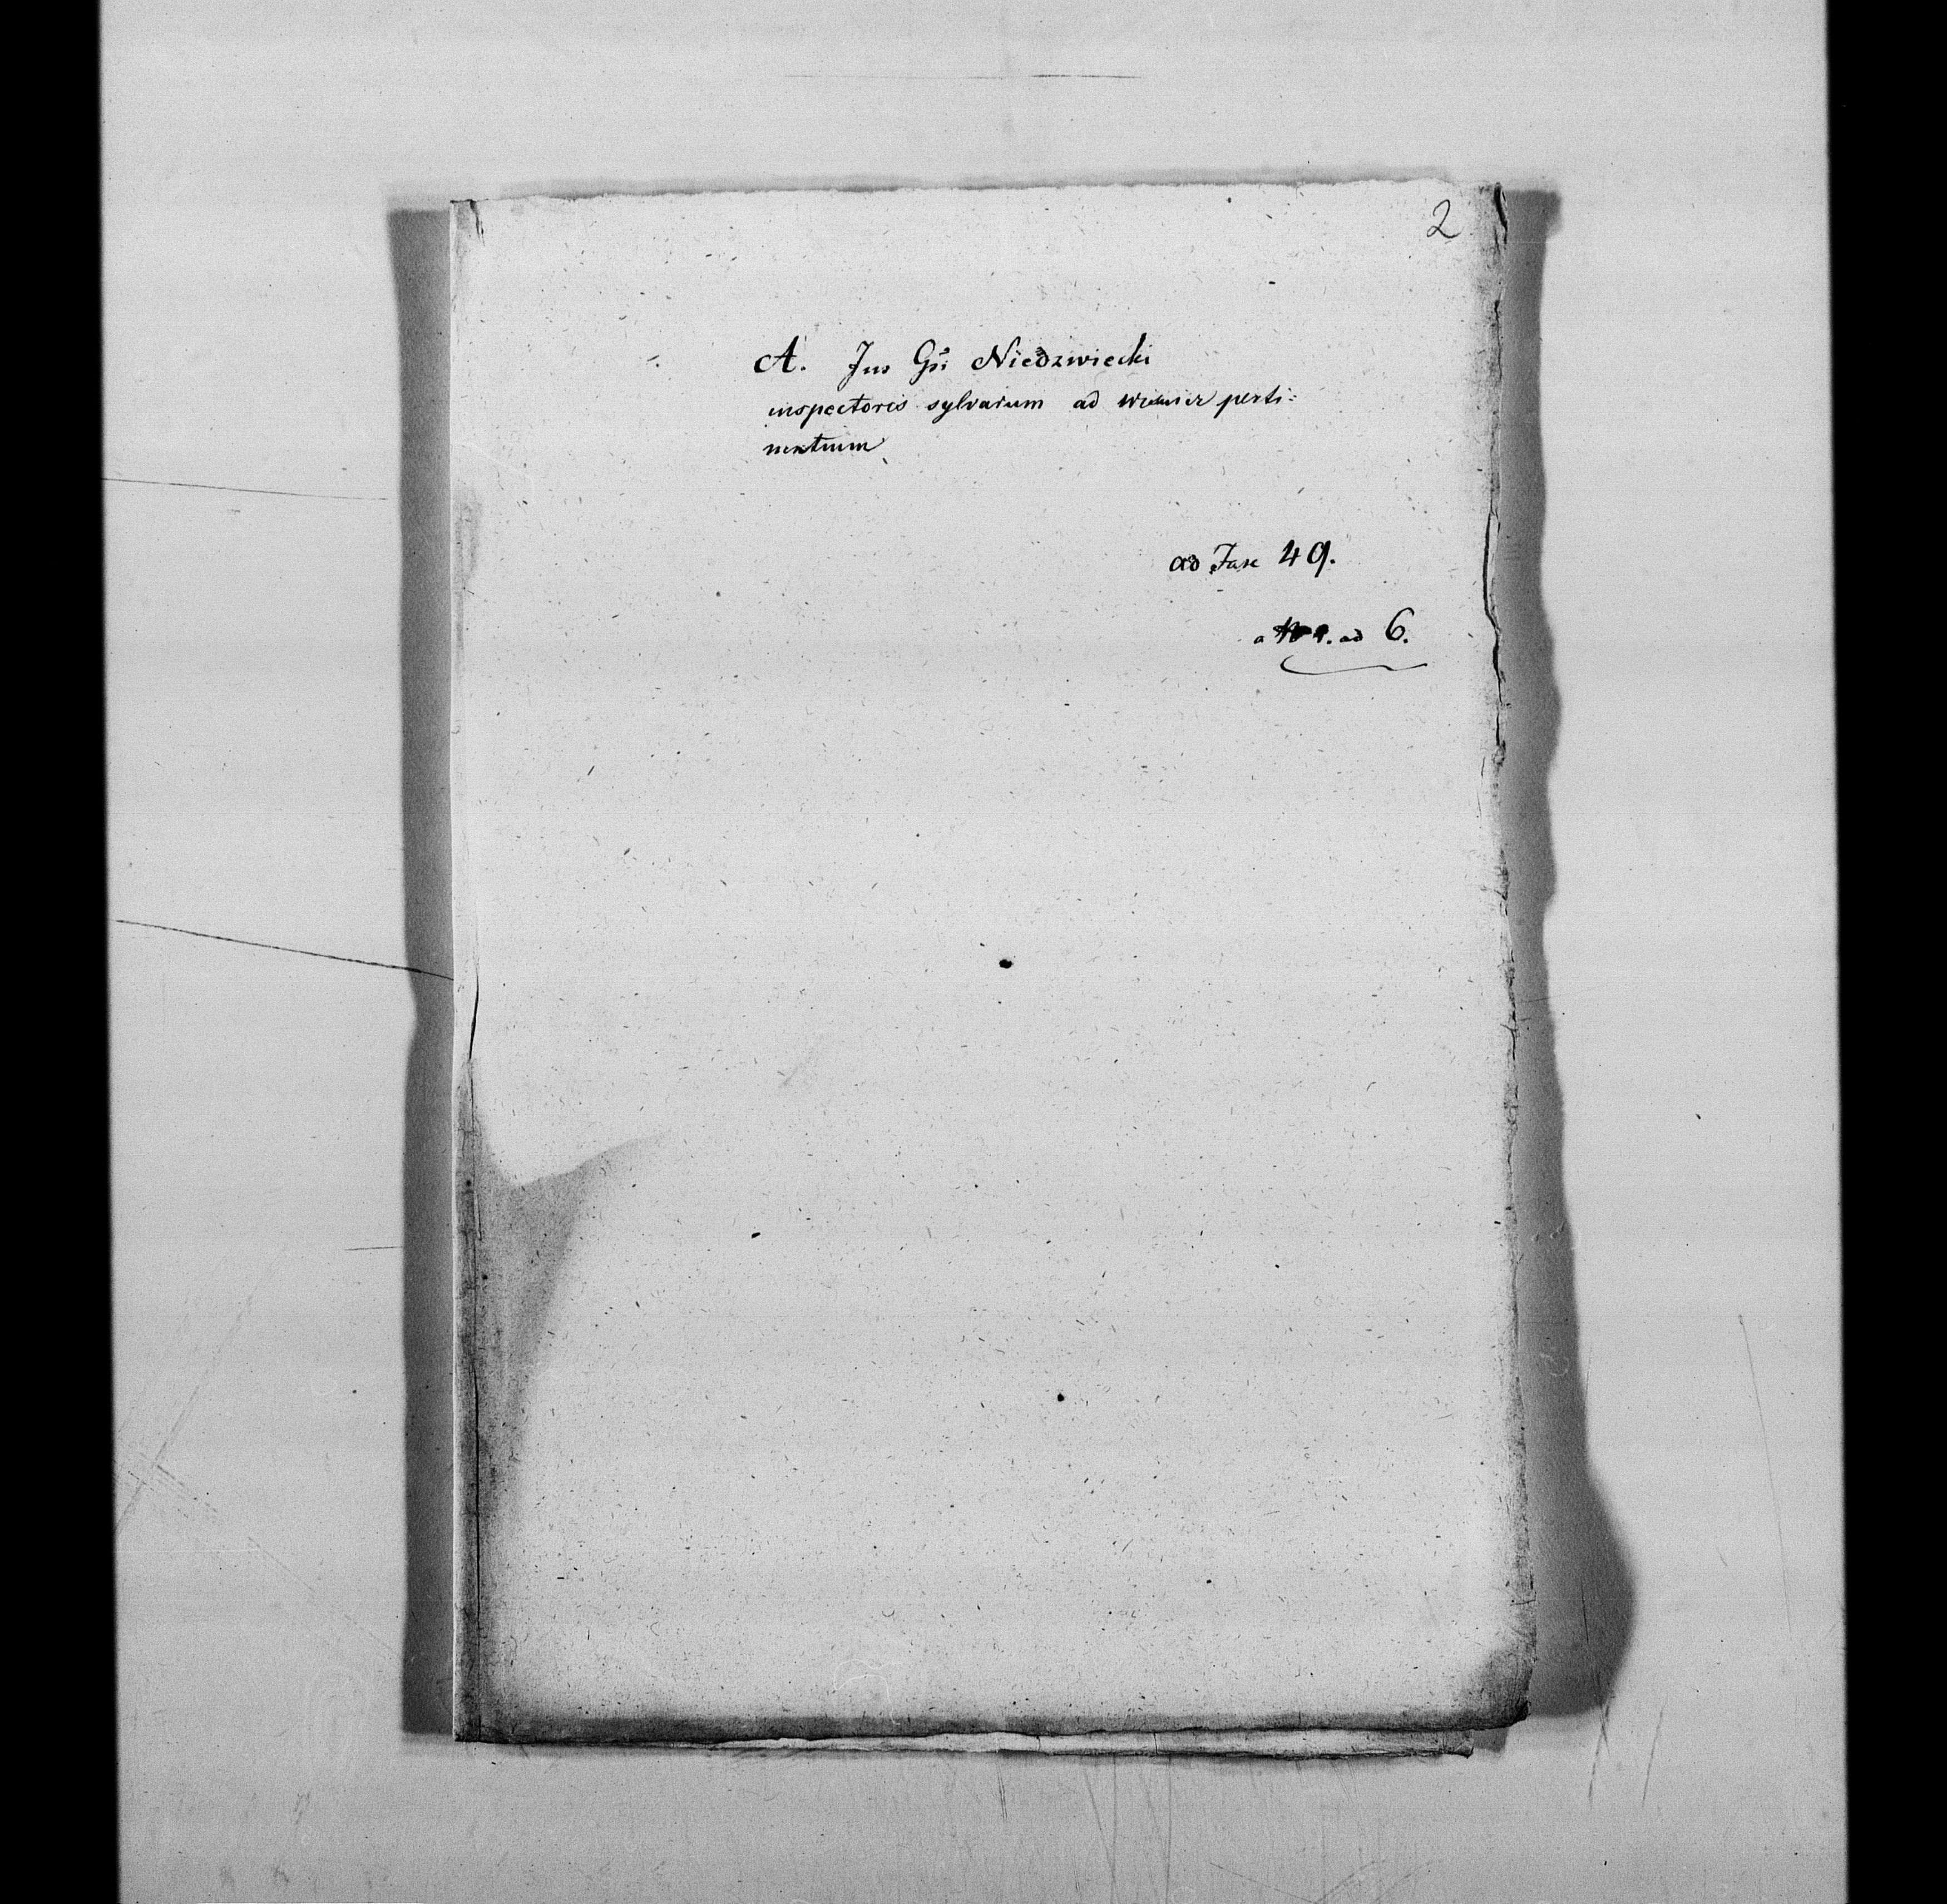 2
A. Jus Gsi Niedzwiecki
inspectoris sylvarum ad perti=
nentium
ad Fasc 49.
a N 1. ad 6.